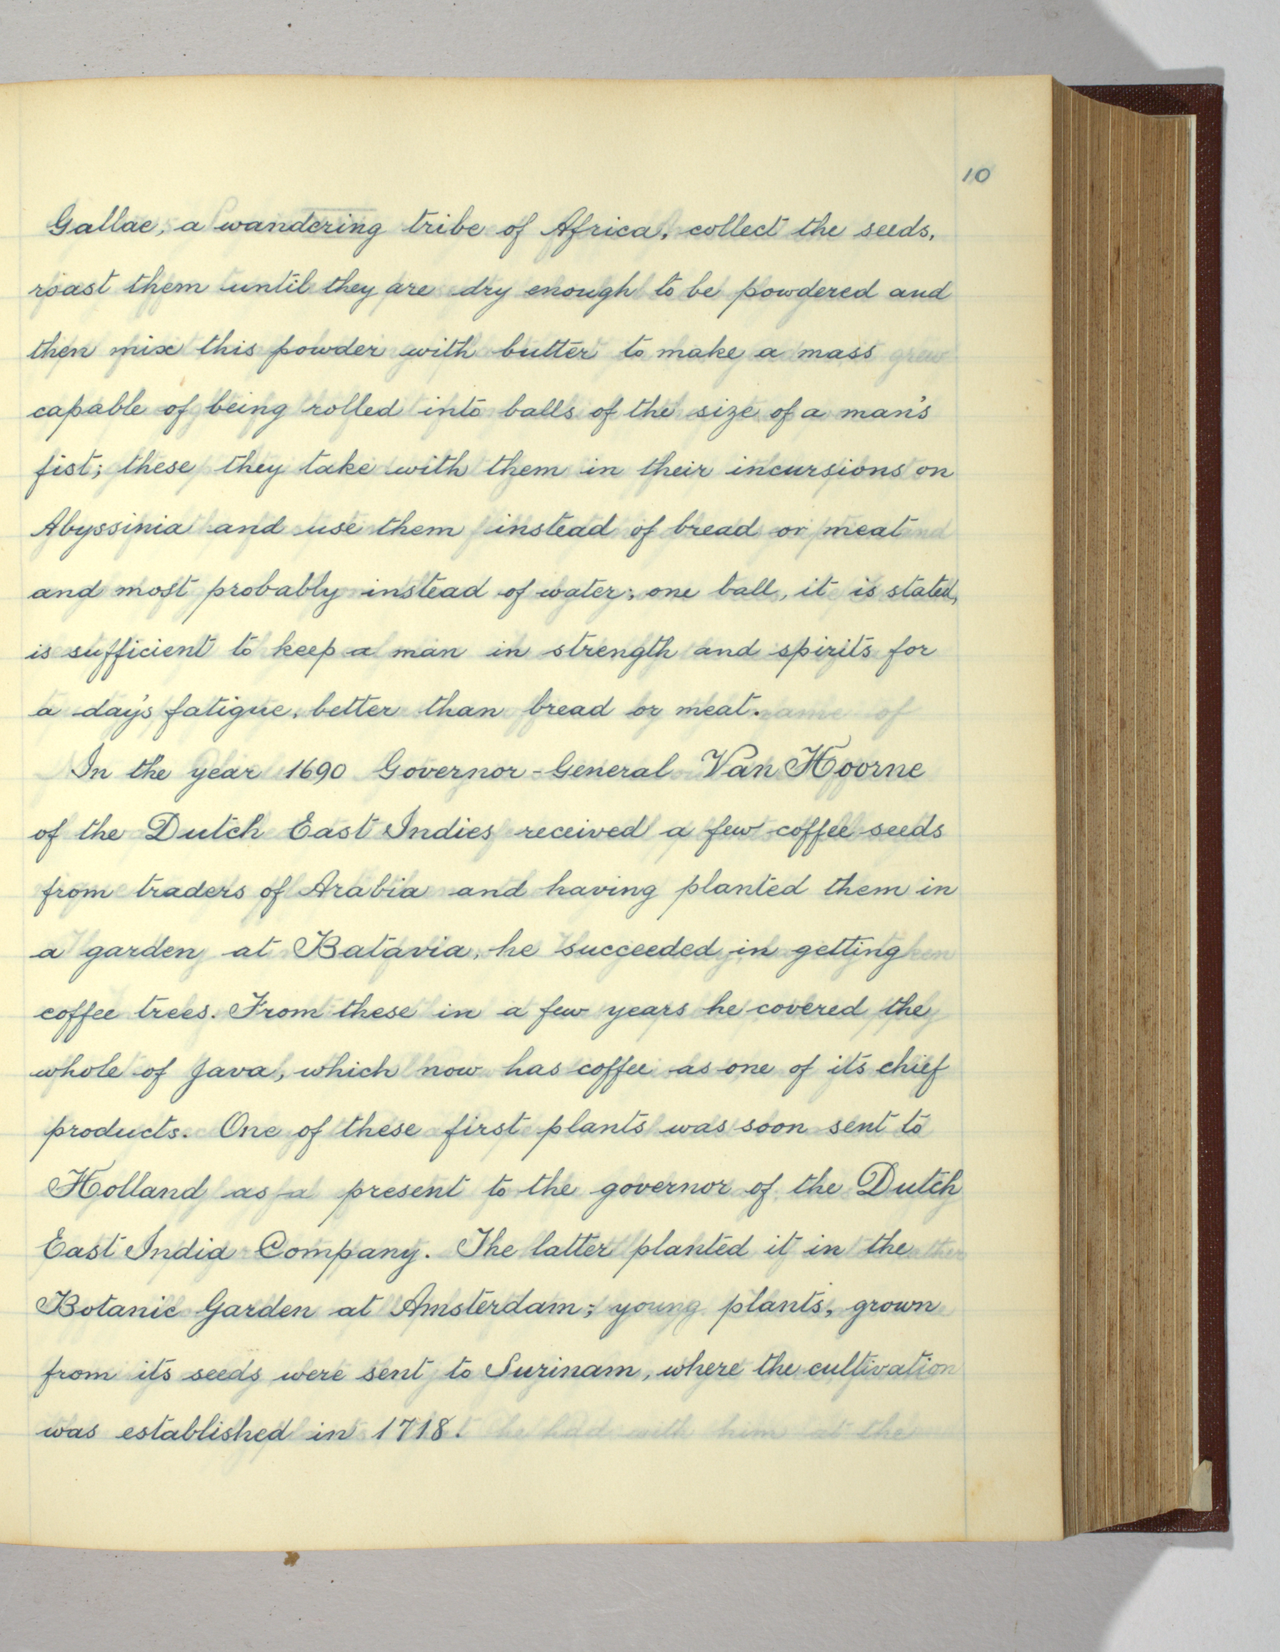 10
Gallae, a wandering tribe of Africa, collect the seeds,
roast them until they are dry enough to be powdered and
then mix this powder with butter to make a mass
capable of being rolled into balls of the size of a man's
fist; these they take with them in their incursions on
Abyssinia and use them instead of bread or meat
and most probably instead of water; one ball, it is stated,
is sufficient to keep a man in strength and spirits for
a day's fatigue, better than bread or meat.
In the year 1690 Governor-General Van Hoorne
of the Dutch East Indies received a few coffee seeds
from traders of Arabia and having planted them in
a garden at Batavia, he succeeded in getting
coffee trees. From these in a few years he covered the
whole of Java, which now has coffee as one of its chief
products. One of these first plants was soon sent to
Holland as a present to the governor of the Dutch
East India Company. The latter planted it in the
Botanic Garden at Amsterdam; young plants, grown
from its seeds were sent to Surinam, where the cultivation
was established in 1718.